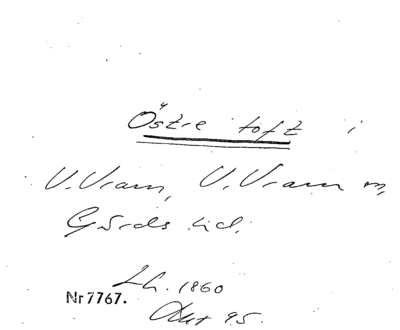 Östre toft i
V. Vram, V. Vram sn,
Gärds hd.
Lh. 1860
Nr 7767.
Akt 95.